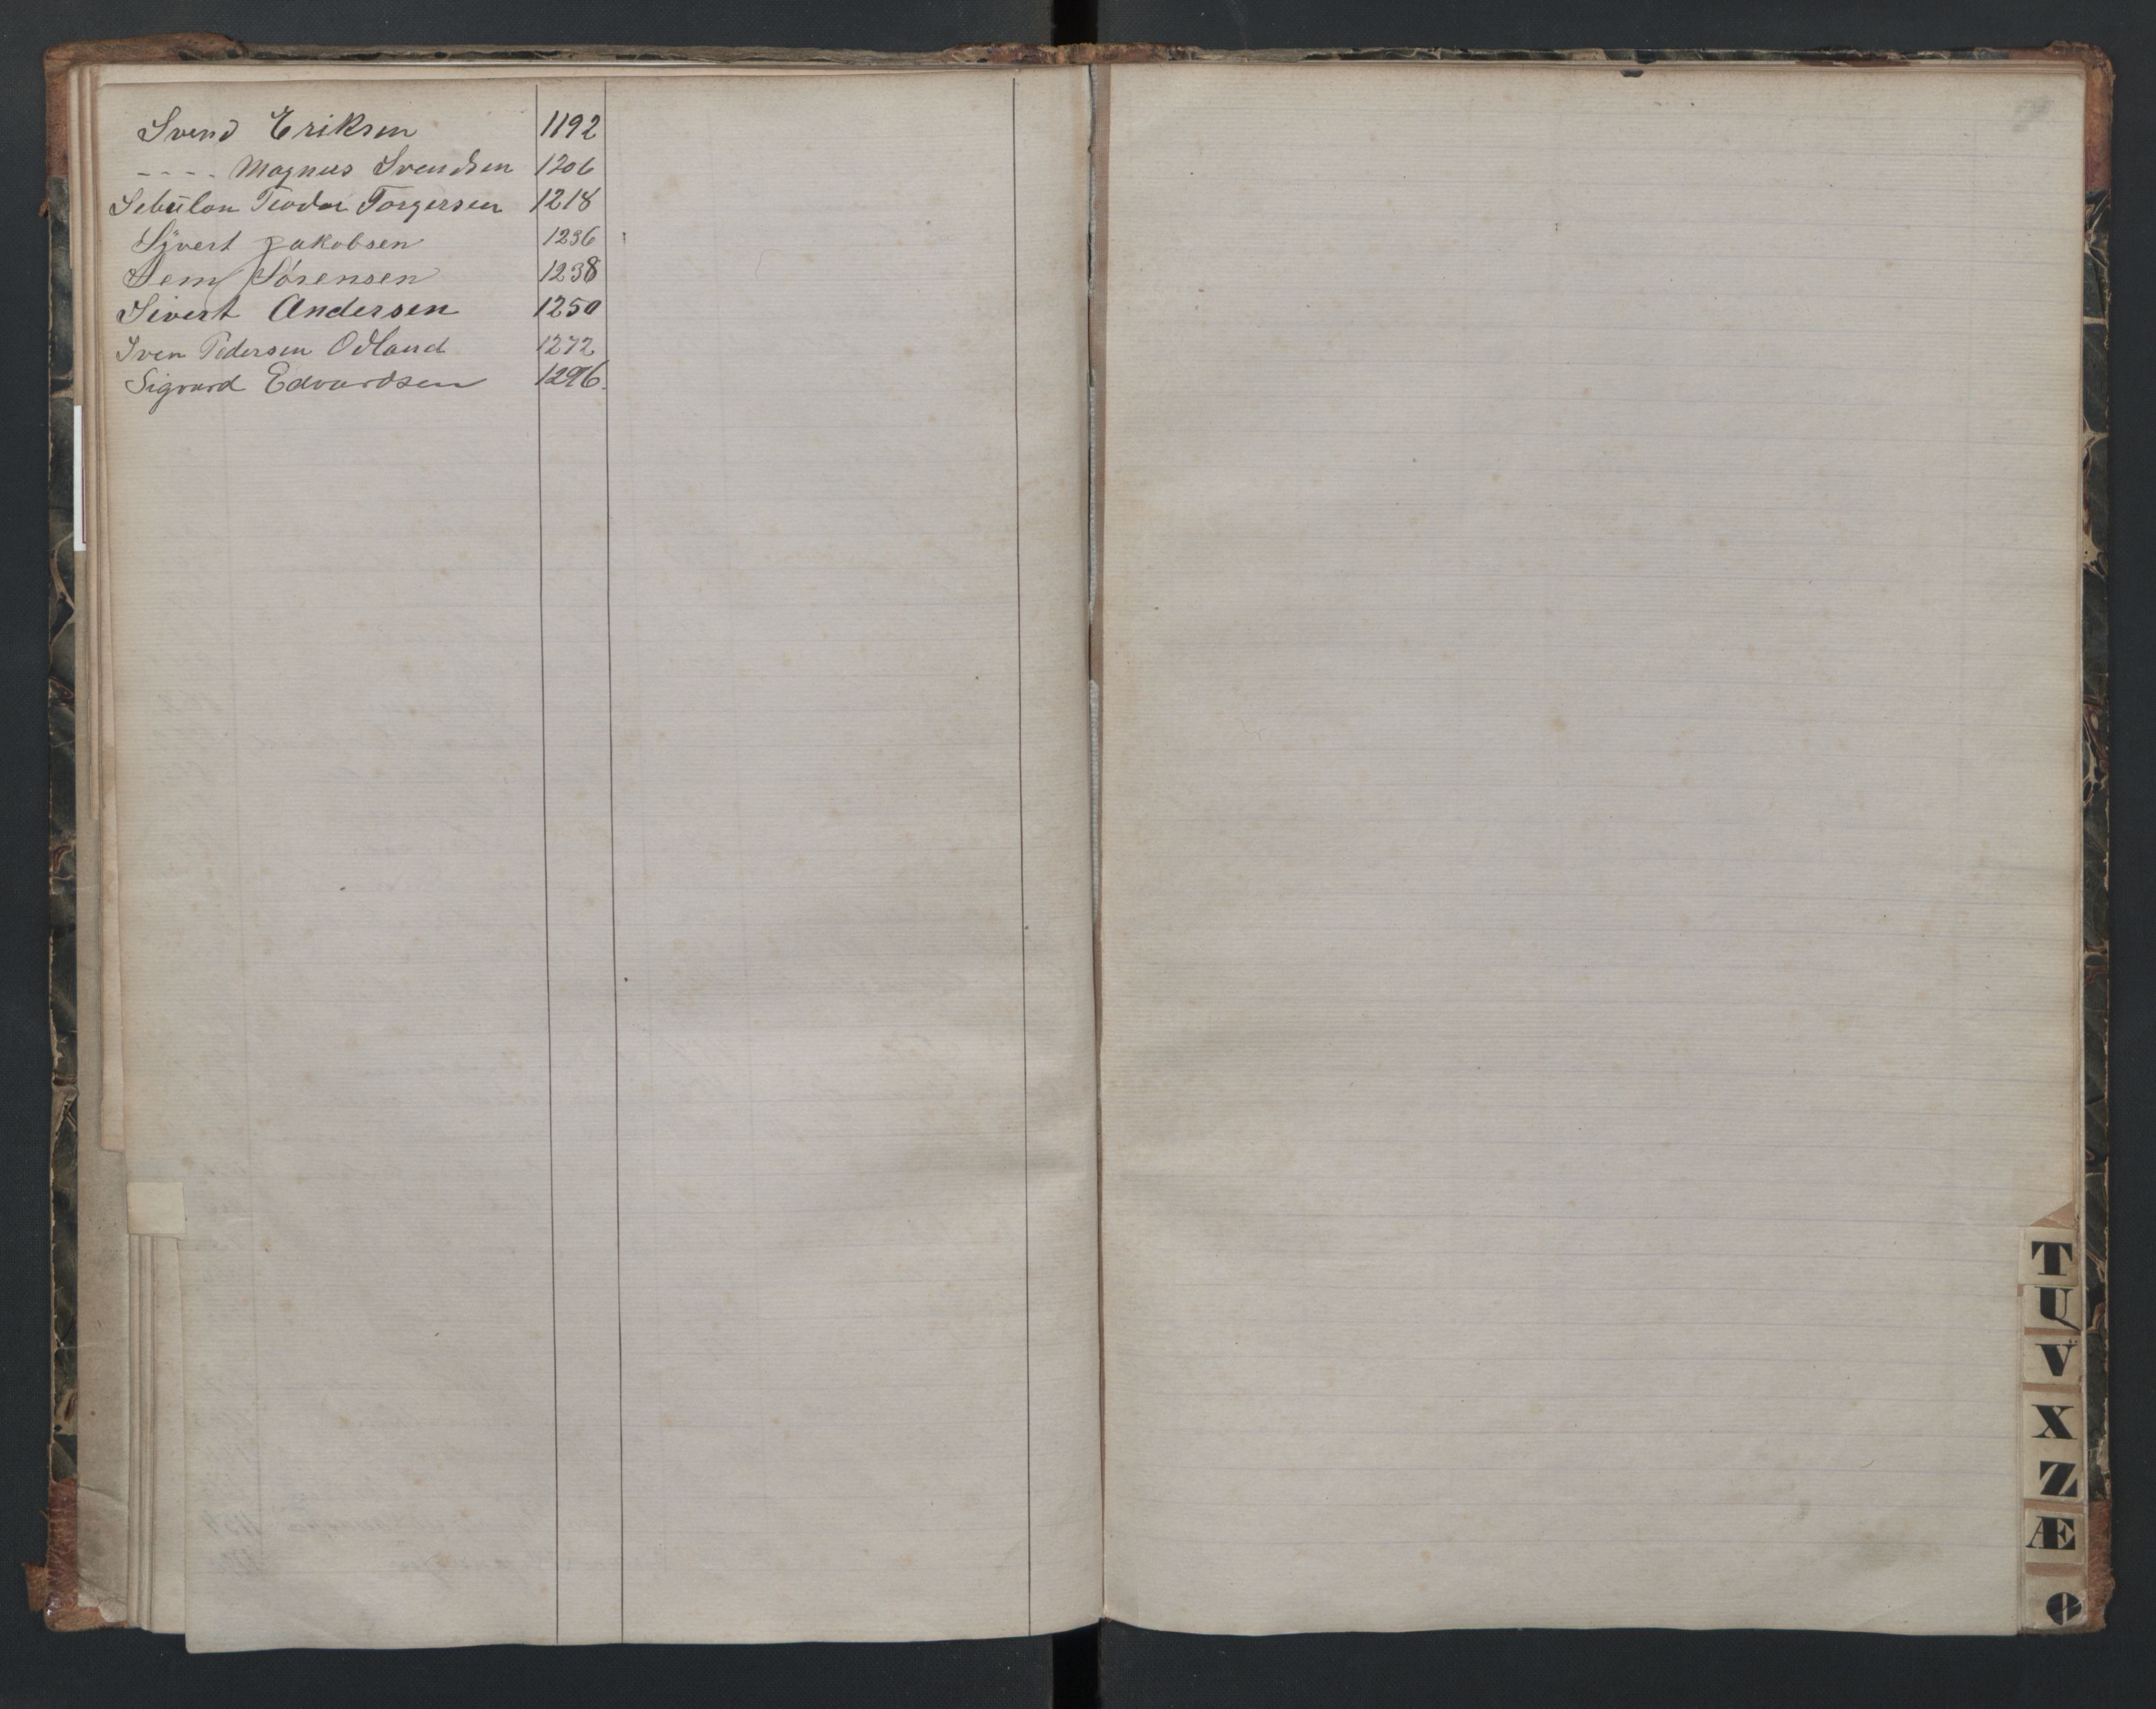 Svend Eriksen 1192
- - - - Magnus Svendsen 1206
Sebulon Teodor Torgersen 1218
Sjvert Jakobsen 1236
Sem Sørensen 1238
Sivert Andersen 1250
Sven Pedersen Odland 1272
Sigvard Edvardsen 1296
T
U
V
X
Z
Æ
Ø